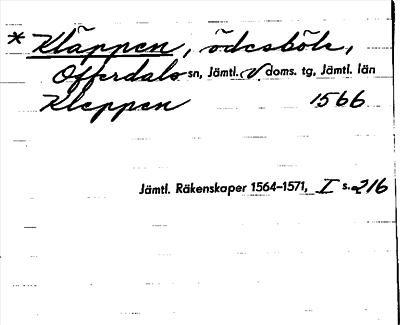 * Kläppen, ödesböle,
Offerdals sn, Jämtl. V. doms. tg, Jämtl. län
Kleppen 1566
Jämtl. Räkenskaper 1564-1571, I s. 216